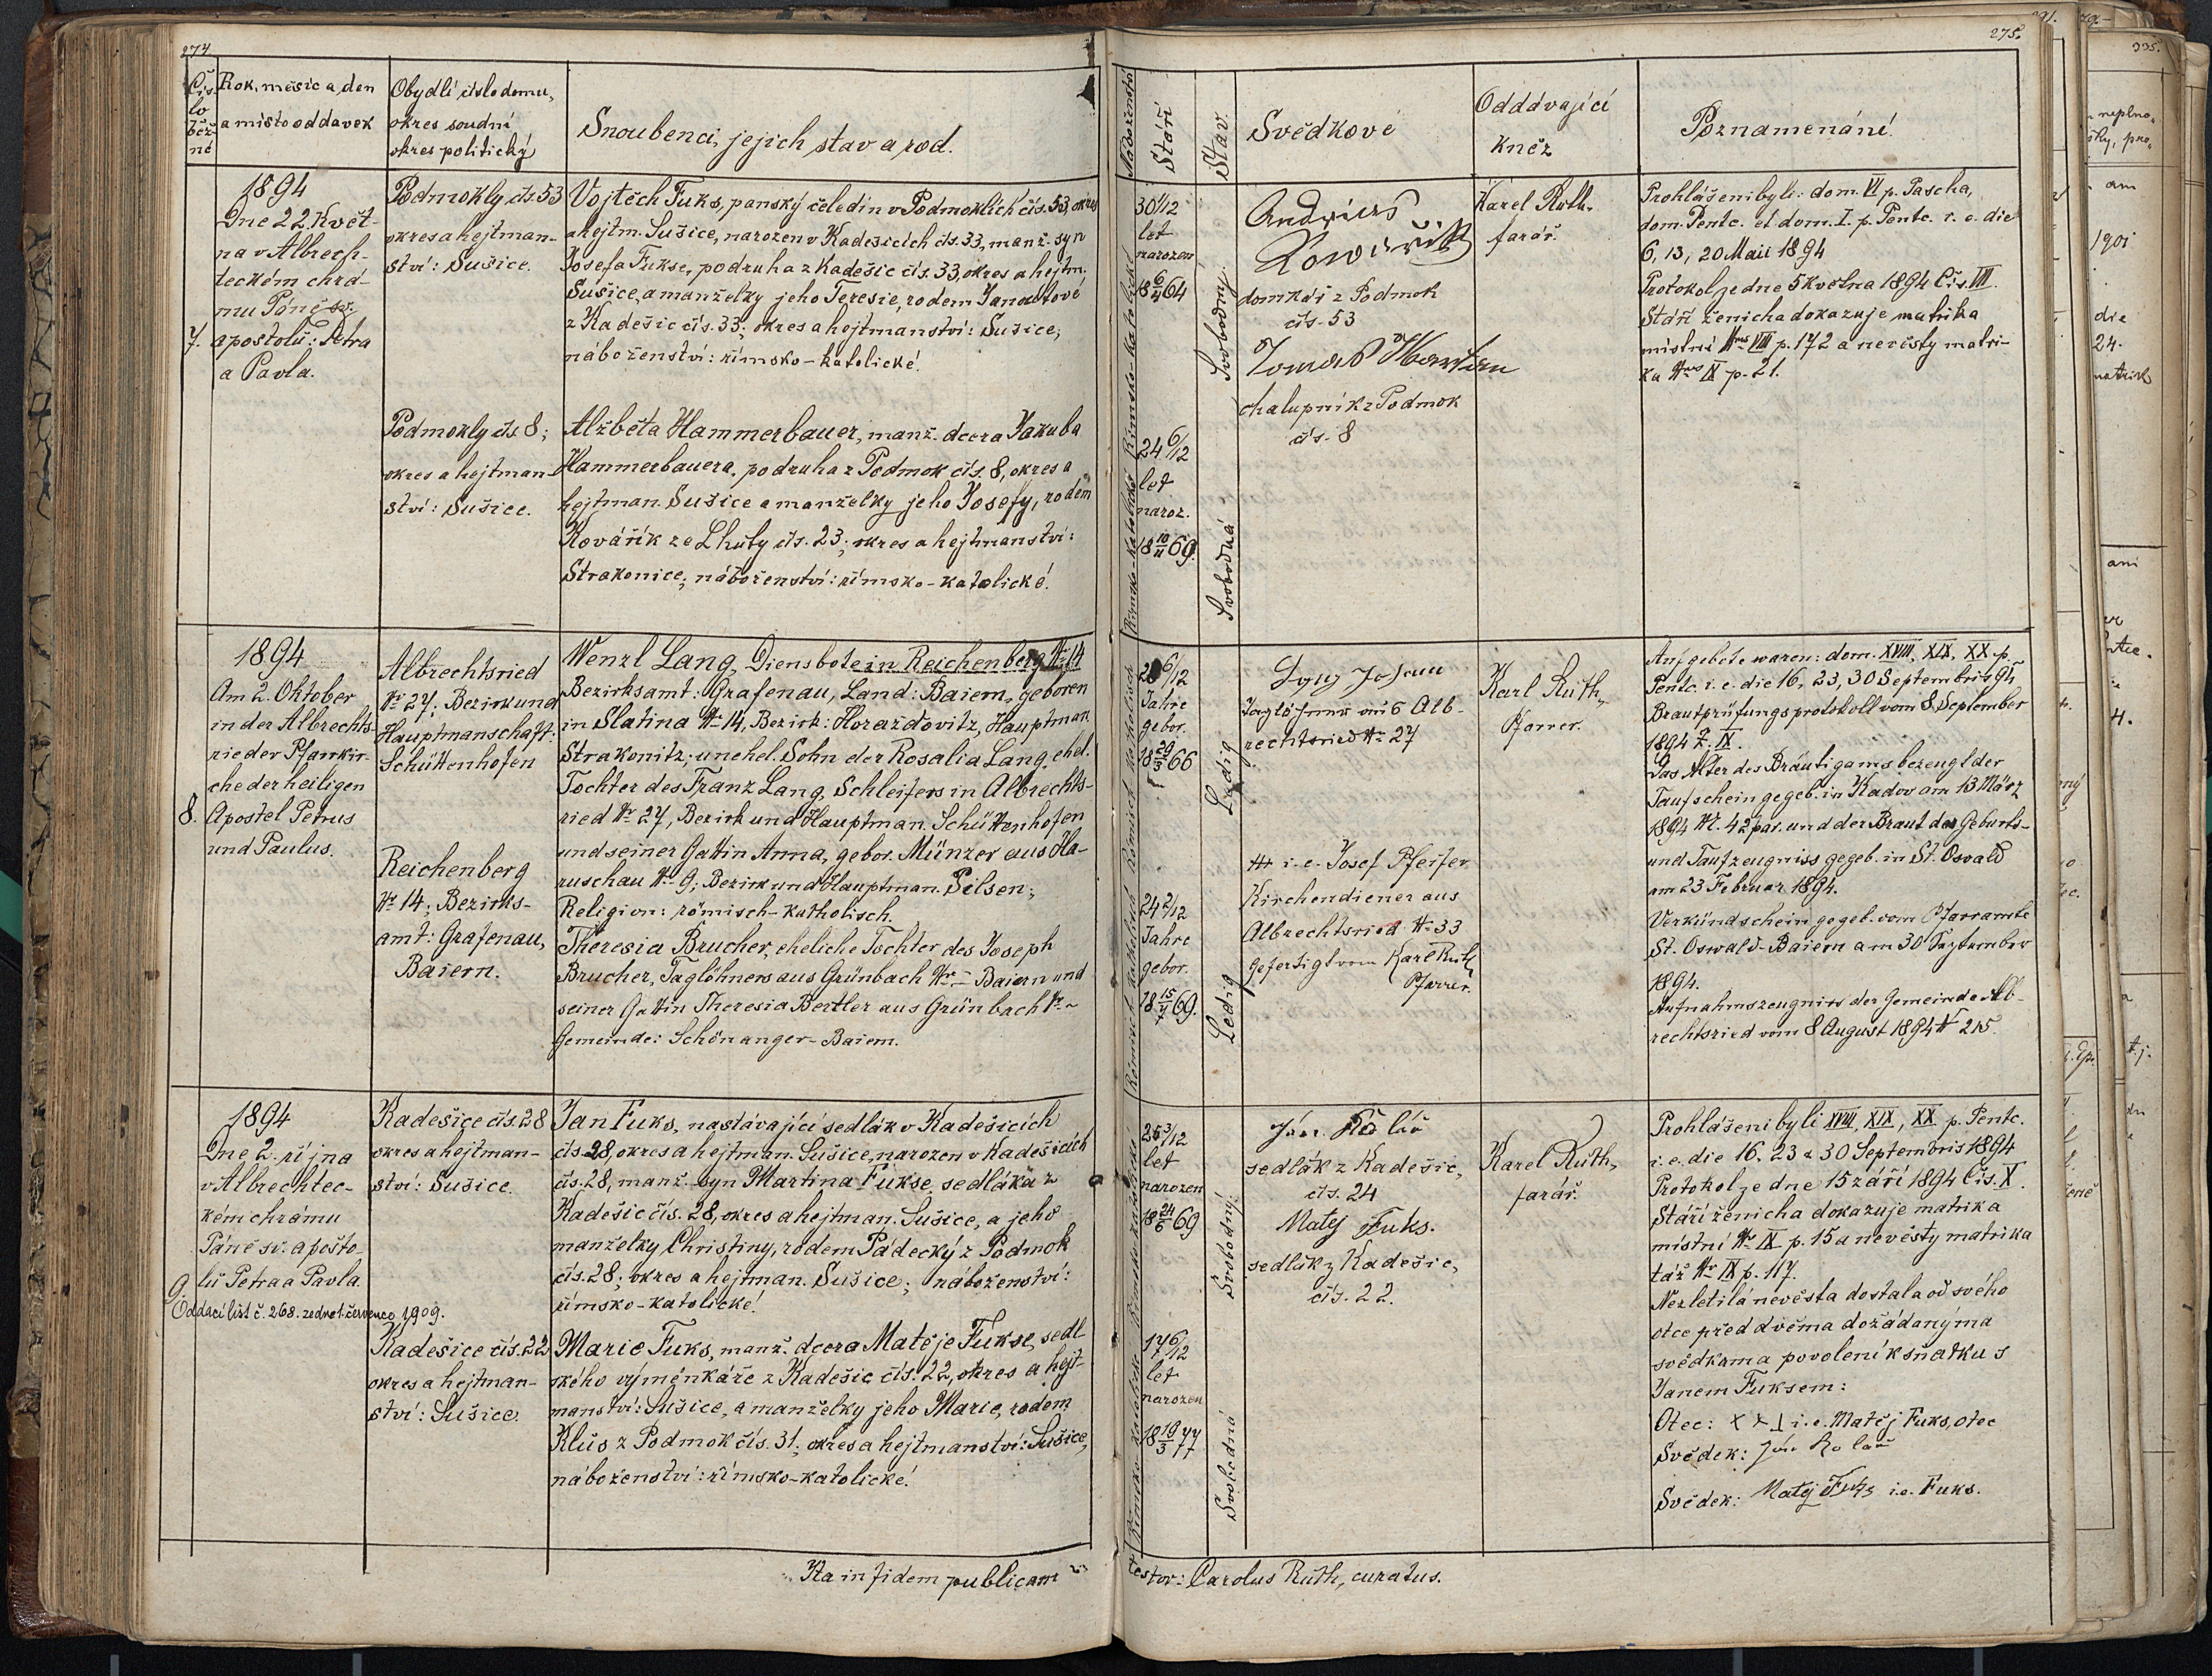 274.
Čís-
lo
běž-
né
Rok, měsíc a den
a místo oddavek
Obydlí číslo domu,
okres soudní
okres politický
Snoubenci, jejich stav a rod.
7.
1894
Dne 22. Květ-
na v Albrech-
teckém chrá-
mu Páně sv.
apoštolů: Petra
a Pavla.
Podmokly čís. 53
okres a hejtman-
ství: Sušice.
Vojtěch Fuks, panský čeledín v Podmoklích čís. 53, okres
a hejtm. Sušice, narozen v Kadešicích čís. 33, manž. syn
Josefa Fukse, podruha z Kadešic čís. 33, okres a hejtm.
Sušice, a manželky jeho Teresie, rodem
z Kadešic čís. 33; okres a hejtmanství: Sušice;
náboženství: římsko-katolické.
Podmokly čís. 8;
okres a hejtman-
ství: Sušice.
Alžběta Hammerbauer, manž. dcera Jakuba
Hammerbauera, podruha z Podmok čís. 8, okres a
hejtman. Sušice a manželky jeho Josefy, rodem
Kovářík ze Lhůty čís. 23; okres a hejtmanství:
Strakonice; náboženství: římsko-katolické.
8.
1894
Am 2. Oktober
in der Albrechts-
rieder Pfarrkir-
che der heiligen
Apostel Petrus
und Paulus.
Albrechtsried
Nr 27; Bezirk und
Hauptmanschaft:
Schüttenhofen
Wenzl Lang, Diensbote in Reichenberg Nr 14
Bezirksamt: Grafenau, Land: Baiern, geboren
in Slatina Nr 14, Bezirk: Horažďovitz, Hauptman
Strakonitz; unehel. Sohn der Rosalia Lang, ehel.
Tochter des Franz Lang, Schleifers in Albrechts-
ried Nr 27, Bezirk und Hauptman. Schüttenhofen
und seiner Gattin Anna, gebor. Münzer aus Ha-
ruschau Nr 9; Bezirk und Hauptman. Pilsen;
Religion: römisch-katholisch.
Reichenberg
Nr 14; Bezirks-
amt: Grafenau,
Baiern.
Theresia Brucher, eheliche Tochter des Joseph
Brucher, Taglöhners aus Grünbach Nr – Baiern und
seiner Gattin Theresia Bertler aus Grünbach Nr –
Gemeinde: Schönanger-Baiern.
9.
1894
Dne 2. října
v Albrechtec-
kém chrámu
Páně sv. apošto-
lů Petra a Pavla.
Oddací list č. 268. ze dne 1. července 1909.
Kadešice čís. 28
okres a hejtman-
ství: Sušice.
Jan Fuks, nastávající sedlák v Kadešicích
čís. 28, okres a hejtman. Sušice, narozen v Kadešicích
čís. 28, manž. syn Martina Fukse, sedláka z
Kadešic čís. 28, okres a hejtman. Sušice, a jeho
manželky Christiny, rodem Pádecký z Podmok
čís. 28; okres a hejtman. Sušice; náboženství:
římsko-katolické.
Kadešice čís. 22
okres a hejtman-
ství: Sušice.
Marie Fuks, manž. dcera Matěje Fukse, sedl-
ského výměnkáře z Kadešic čís. 22, okres a hejt-
manství: Sušice, a manželky jeho Marie, rodem
Klůs z Podmok čís. 31; okres a hejtmanství: Sušice,
náboženství: římsko-katolické.
Ita in fidem publicam
275.
Náboženství
Stáří
Stav.
Svědkové
Oddávající
kněz
Poznamenání.
Římsko-katolické
30 1/12
let
narozen
18 6/4 64
Svobodný.
Andreas
čís. 53
Tomaš
chalupník z Podmok
čís. 8
Karel Ruth,
farář.
Prohlášeni byli: dom. VI p. Pascha,
dom. Pentc. et dom. I. p. Pentc. i. e. die
6, 13, 20 Maii 1894
Protokol ze dne 5 května 1894 Čís. VIII.
Stáří ženicha dokazuje matrika
místní Nro VIII p. 172 a nevěsty matri-
ka Nro IX p. 21.
Římsko-katolické
24 6/12
let
naroz.
18 10/11 69.
Svobodná
Römisch katholisch
6/12
Jahre
gebor.
18 29/3 66
Ledig
Johann
Taglöhner aus Alb-
rechtsried Nr 27
Karl Ruth,
Pfarrer.
Aufgebote waren: dom. XVIII, XIX, XX p.
Pentc. i. e. die 16, 23, 30 Septembris 94
Brautprüfungsprotokoll vom 8. September
1894 Z. IX.
Das Alter des Bräutigams bezeugt der
Taufschein gegeb. in Kadov am 13 März
1894 Nr. 42 par. und der Braut der Geburts-
und Taufzeugniss gegeb. in St. Osvald
am 23 Februar 1894.
Verkündschein gegeb. vom Pfarramte
St. Oswald-Baiern am 30 September
1894.
Aufnahmszeugniss der Gemeinde Alb-
rechtsried vom 8 August 1894 Nr 215.
Römisch katholisch
24 2/12
Jahre
gebor.
18 15/7 69.
Ledig
i. e. Josef Pfeifer
Kirchendiener aus
Albrechtsried Nr 33
gefertigt vom Karl Ruth
Pfarrer.
Římsko-katolické
25 3/12
let
narozen
18 24/6 69
Svobodný.
Jan Kolář
sedlák z Kadešic,
čís. 24
Matej Fuks.
sedlák z Kadešic,
čís. 22.
Karel Ruth,
farář.
Prohlášeni byli XVIII, XIX, XX p. Pentc.
i. e. die 16. 23 a 30 Septembris 1894
Protokol ze dne 15 září 1894 Čís. X.
Stáří ženicha dokazuje matrika
místní Nr IX p. 15 a nevěsty matrika
táž Nr IX p. 117.
Nezletilá nevěsta dostala od svého
otce před dvěma dožádanýma
svědkama povolení k sňatku s
Janem Fuksem:
Otec: x x x i. e. Matěj Fuks, otec
Svědek: Jan Kolář
Svědek: Matěj Fuks i. e. Fuks.
Římsko-katolické
17 6/12
let
narozen
18 19/3 77
Svobodná
testor: Carolus Ruth, curatus.
335.
1901
die
24.